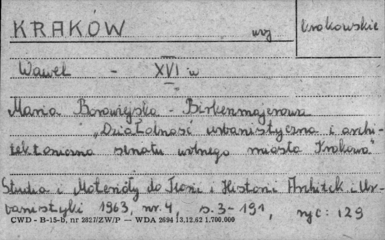 KRAKÓW woj krakowskie
Wawel - XVI w
Maria Borowiejska - Birkenmajerowa
"Działalność urbanistyczna i archi-
tektoniczna senatu wolnego miasta Krakowa"
Studia i Materiały do Teorii i Historii Architek. i Ur-
banistyki 1963, nr. 4, s. 3-191, ryc: 129
CWD - B-15-b, nr 2827/ZW/P — WDA 2694 13.12.62 1.700.000